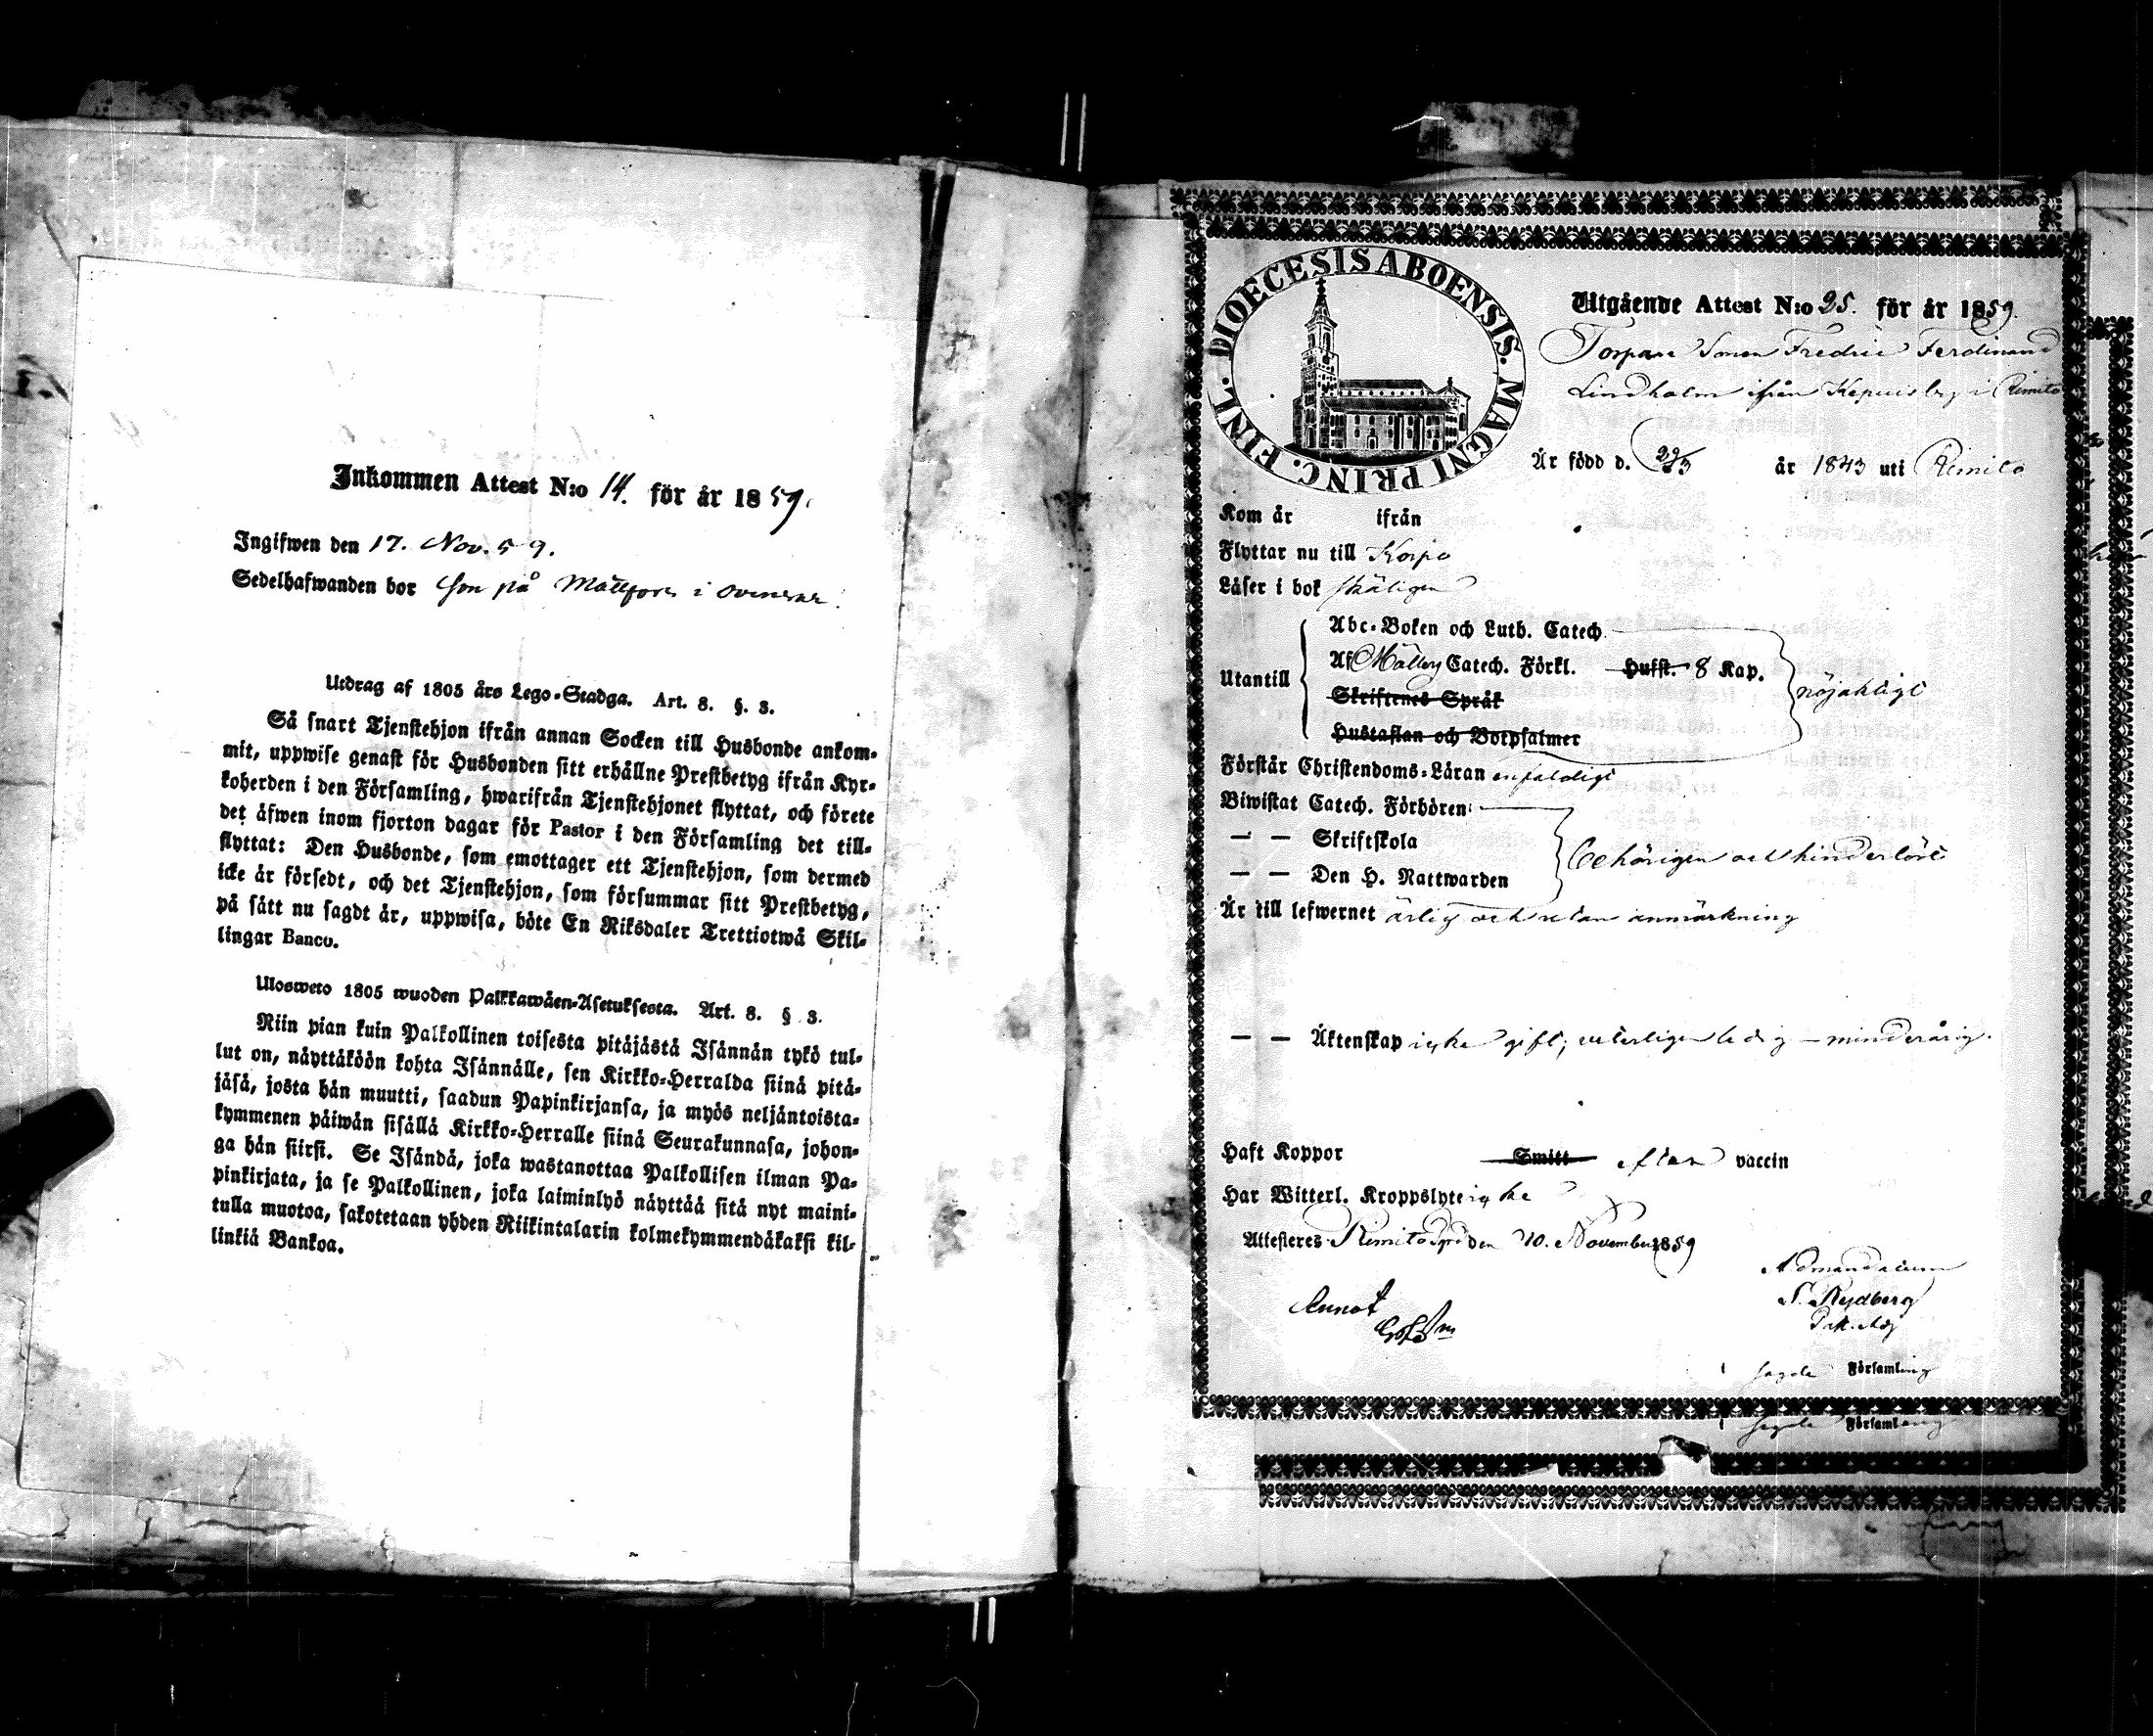 Inkommen Attest N:o 14. för år 1859.
Ingifwen den 17. Nov. 59.
Sedelhafwanden bor Son på i
Utdrag af 1805 års Lego-Stadga. Art. 8. §. 3.
Så snart Tjenstehjon ifrån annan Socken till Husbonde ankom-
mit, uppwise genast för Husbonden sitt erhållne Prestbetyg ifrån Kyr-
koherden i den Församling, hwarifrån Tjenstehjonet flyttat, och förete
det äfwen inom fjorton dagar för Pastor i den Församling det till-
flyttat: Den Husbonde, som emottager ett Tjenstehjon, som dermed
icke är försedt, och det Tjenstehjon, som försummar sitt Prestbetyg,
på sätt nu sagdt är, uppwisa, böte En Riksdaler Trettiotwå Skil-
lingar Banco.
Ulosweto 1805 wuoden Palkkawäen-Asetuksesta. Art. 8. § 3.
Niin pian kuin Palkollinen toisesta pitäjästä Isännän tykö tul-
lut on, näyttäköön kohta Isännälle, sen Kirkko-Herralda siinä pitä-
jäsä, josta hän muutti, saadun Papinkirjansa, ja myös neljäntoista-
kymmenen päiwän sisällä Kirkko-Herralle siinä Seurakunnasa, johon-
ga hän siirsi. Se Isändä, joka wastanottaa Palkollisen ilman Pa-
pinkirjata, ja se Palkollinen, joka laiminlyö näyttää sitä nyt maini-
tulla muotoa, sakotetaan yhden Riikintalarin kolmekymmendäkaksi kil-
linkiä Bankoa.
DIOECESIS ABOENSIS. MAGNI PRINC. FINL.
Utgående Attest N:o 25. för år 1859.
Torpare Sonen Fredric Ferdinand
Lindholm ifrån i Rimito
Är född d. 22/3 år 1843 uti Rimito
Kom år ifrån
Flyttar nu till Korpo
Läser i bok skäligen
Utantill
Abc-Boken och Luth. Catech.
Af Möllers Catech. Förkl. Hufst. 8 Kap.
Skriftenes Språk
Hustaflan och Botpsalmer
nöjaktigt
Förstår Christendoms-Läran enfaldigt
Biwistat Catech. Förhören
— — Skriftskola
— — Den H. Nattwarden
behörigen och hinderlöst
Är till lefwernet ärlig och utan anmärkning
— — Äktenskap icke gift; veterligen ledig – minderårig.
Haft Koppor Smitt efter vaccin
Har Witterl. Kroppslyte icke
Attesteras Rimito den 10. November 1859
Admandatum
S. Rydberg
Annot
i sagde Församling
i sagde Församling